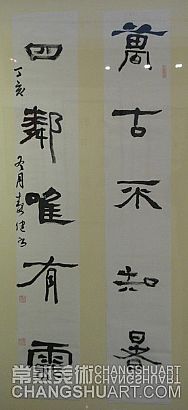 萬古不知暑
四鄰唯有雲
丁亥冬月
常熟美術 CHANGSHUART
CHANGSHUART.COM